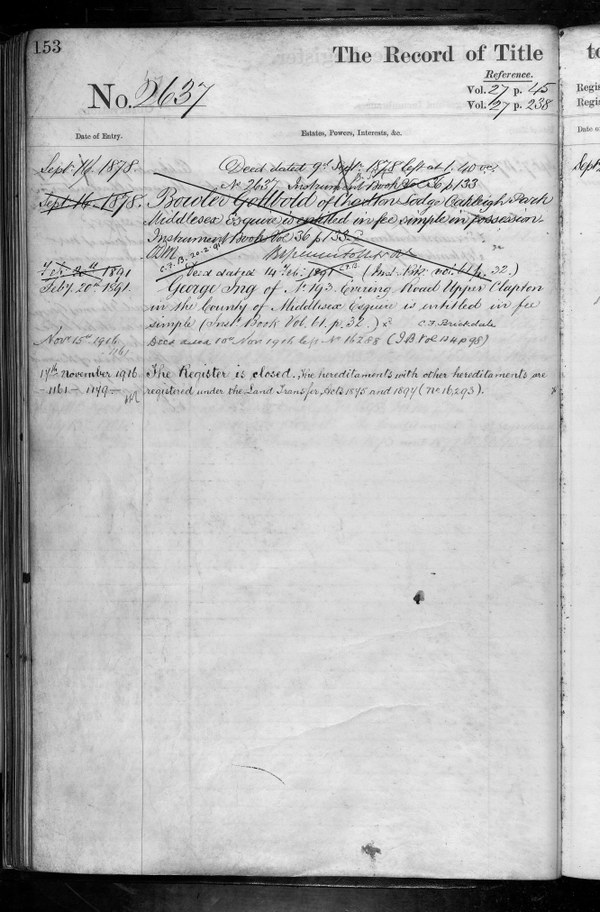 153
The Record of Title
to
Reference.
No. 2637
Vol. 27 p. 45
Vol. 27 p. 238
Regis
Regis
Date of Entry.
Estates, Powers, Interests, &c.
Date of
Sept. 14. 1878.
Deed dated 9th Sept. 1878 left at 1. 40
Sept
No 2637 Instrument Book Vol 36 p 133
Sept 14. 1878.
Bowler Gottbold of Lodge Oakleigh Park
Middlesex Esquire is entitled in fee simple in possession
Instrument Book Vol 36 p 133
C.F.B. 20-2-91
Feb. 20th 1891
Deed dated 14 Feb. 1891 (Inst. Bk. vol. 61 p. 32.)
Feby. 20th 1891.
George Ing of No 193 Evering Road Upper Clapton
in the County of Middlesex Esquire is entitled in fee
simple (Inst. Book Vol. 61. p. 32.) C.F. Brickdale
Nov 15th 1916
Deed dated 10th Nov 1916 left No 16288 (I B Vol 114 p 98)
1161
17th November 1916
The Register is closed. The hereditaments with other hereditaments are
- 1161 - 1179 -
registered under the Land Transfer Acts 1875 and 1897 (No 16,293).